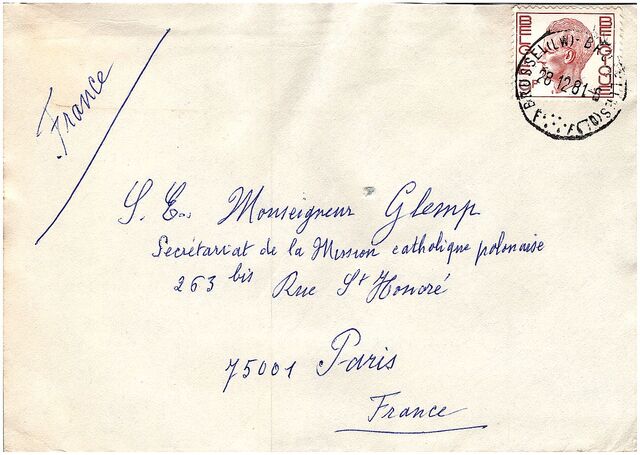 France
BELGIQUE
BELGIE
BRUSSEL(LW)-BRUXELLES(QL)
28.12.81
S. Em. Monseigneur Glemp
Secrétariat de la Mission catholique polonaise
263 bis Rue St Honoré
75001 Paris
France